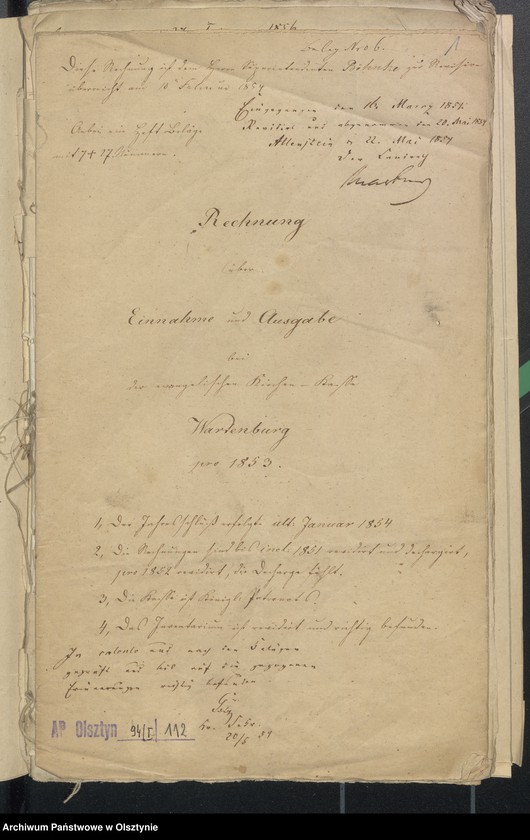 1856
Beleg No 6.
1
Diese Rechnung ist dem Herrn Superintendenten zur Revision
überreicht am 14 Februar 1854
Eingegangen den 16 Maerz 1854.
Revidirt und abgenommen den 20. Mai 1854
Allenstein d 22. Mai 1854
Der Landrath
Anbei ein Heft Beläge
17 + 27
Rechnung
über
Einnahme und Ausgabe
bei
der evangelischen Kirchen-Kasse
Wartenburg
pro 1853.
1, Der Jahresschluß erfolgte ult. Januar 1854
2, Die Rechnungen sind bis incl. 1851 revidirt und dechargirt,
pro 1852 revidirt, die Decharge fehlt.
3, Die Kasse ist Königl. Patronats.
4, Das Inventarium ist revidirt und richtig befunden.
In calculo und nach den Belägen
geprüft und bis auf die gezogenen
Erinnerungen richtig befunden
20/5 54
AP Olsztyn 94/I/112
Archiwum Państwowe w Olsztynie